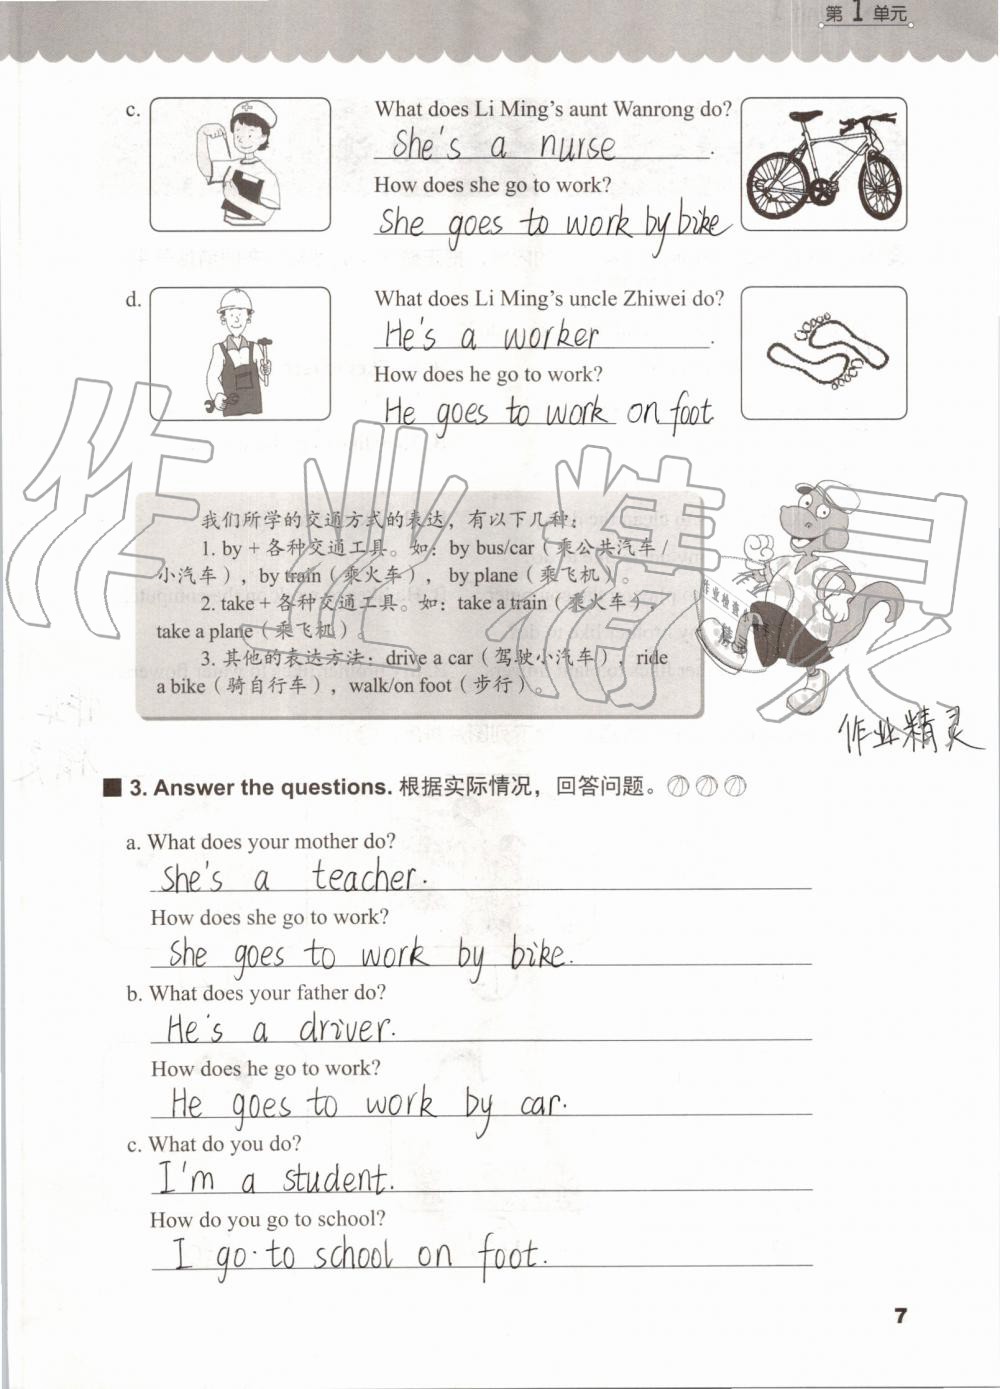 第1单元
c.
What does Li Ming's aunt Wanrong do?
She's a nurse.
How does she go to work?
She goes to work by bike
d.
What does Li Ming's uncle Zhiwei do?
He's a worker.
How does he go to work?
He goes to work on foot
我们所学的交通方式的表达，有以下几种：
1. by + 各种交通工具。如：by bus/car（乘公共汽车/
小汽车），by train（乘火车），by plane（乘飞机）。
2. take + 各种交通工具。如：take a train（乘火车），
take a plane（乘飞机）。
3. 其他的表达方法：drive a car（驾驶小汽车），ride
a bike（骑自行车），walk/on foot（步行）。
作业精灵
作业精灵
3. Answer the questions. 根据实际情况，回答问题。
a. What does your mother do?
She's a teacher.
How does she go to work?
She goes to work by bike.
b. What does your father do?
He's a driver.
How does he go to work?
He goes to work by car.
c. What do you do?
I'm a student.
How do you go to school?
I go to school on foot.
7